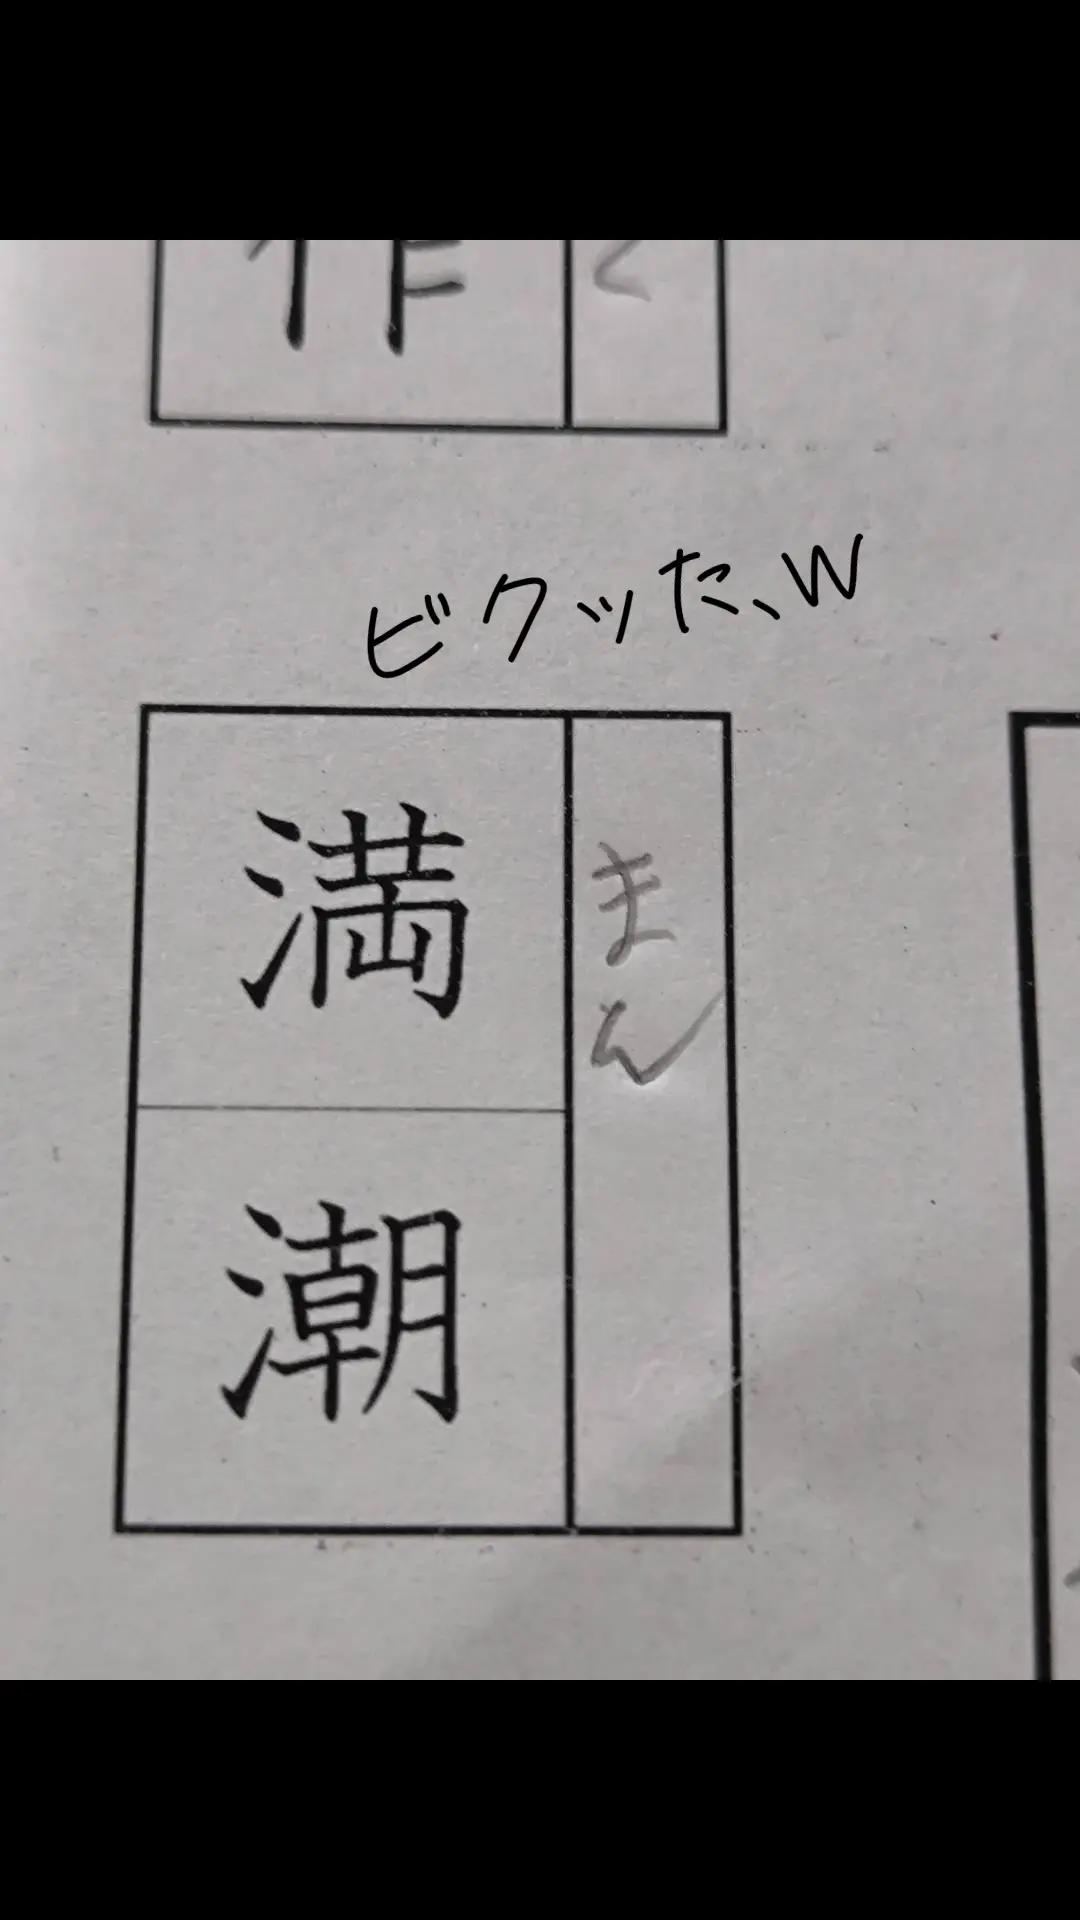 作
く
ビクッた、w
満潮
まん